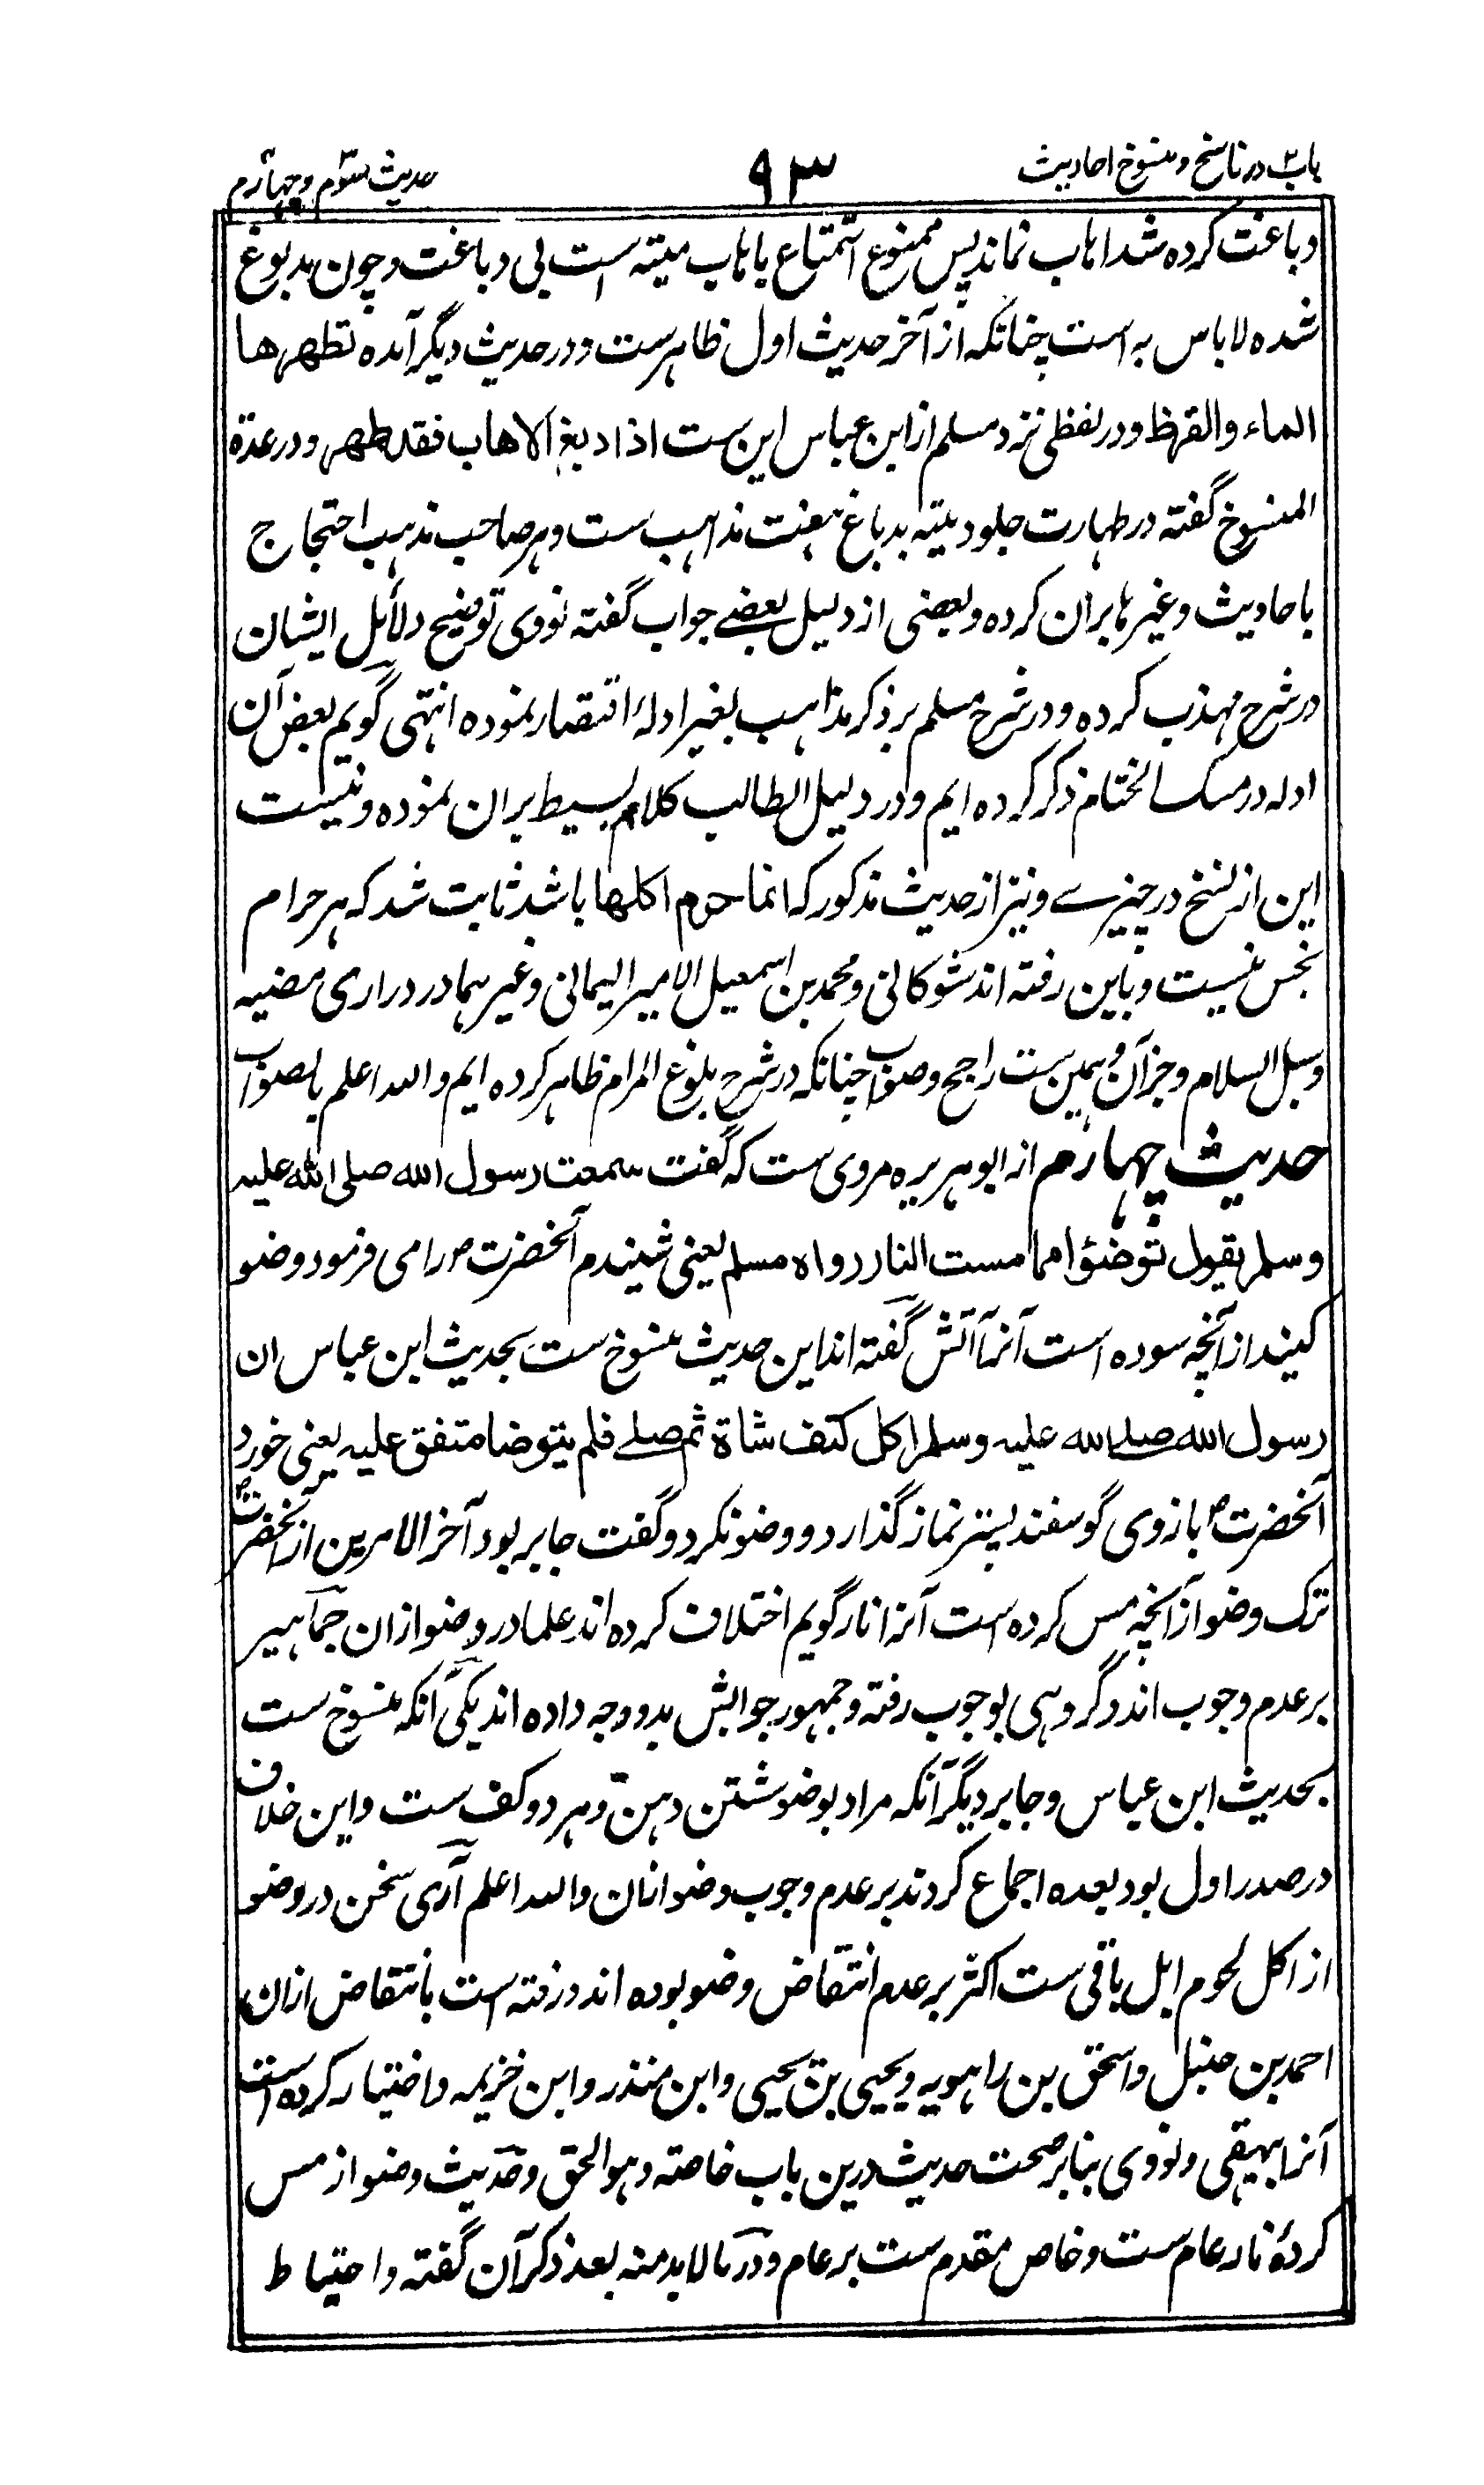 باب۲ در ناسخ و منسوخ احادیث
۹۳
حدیث سوم و چهارم
دباغت کرده شد اهاب نماند پس ممنوع استمتاع باهاب میته است بی دباغت و چون مدبوغ
شده لا باس به است چنانکه از آخر حدیث اول ظاهرست و در حدیث دیگر آمده تطهرها
الماء والقرظ و در لفظی نزد مسلم از ابن عباس این ست اذا دبغ الاهاب فقد طهر و در عدة
المنسوخ گفته در طهارت جلود میته بدباغ هفت مذاهب ست و هر صاحب مذهب احتجاج
باحادیث و غیرها بران کرده و بعضی از دلیل بعضے جواب گفته نووی توضیح دلائل ایشان
در شرح مهذب کرده و در شرح مسلم بر ذکر مذاهب بغیر ادله اقتصار نموده انتهی گویم بعض آن
ادله در مسک الختام ذکر کرده ایم و در دلیل الطالب کلام بسیط بران نموده و نیست
این از نسخ در چیزے و نیز از حدیث مذکور که انما حرم اکلها باشد ثابت شد که هر حرام
نجس نیست و باین رفته اند شوکانی و محمد بن اسمعیل الامیر الیمانی و غیرهما در دراری مضیه
و سبل السلام و جز آن و همین ست راجح و صواب چنانکه در شرح بلوغ المرام ظاهر کرده ایم والله اعلم بالصواب
حدیث چهارم از ابو هریره مروی ست که گفت سمعت رسول الله صلی الله علیه
وسلم یقول توضؤا مما مست النار رواه مسلم یعنی شنیدم آنحضرت ص را می فرمود وضو
کنید از آنچه سوده است آنرا آتش گفته اند این حدیث منسوخ ست بحدیث ابن عباس ان
رسول الله صلے الله علیه وسلم اکل کتف شاة ثم صلے فلم یتوضا متفق علیه یعنی خورد
آنحضرت ص بازوی گوسفند پستر نماز گذارد و وضو نکرد و گفت جابر بود آخر الامرین از آنحضرت ص
ترک وضو از آنچه مس کرده است آنرا نار گویم اختلاف کرده اند علما در وضو ازان جماهیر
بر عدم وجوب اند و گروهی بوجوب رفته و جمهور جوابش بدو وجه داده اند یکی آنکه منسوخ ست
بحدیث ابن عباس و جابر دیگر آنکه مراد بوضو شستن دهن و هر دو کف ست و این خلاف
در صدر اول بود بعده اجماع کردند بر عدم وجوب وضو ازان والله اعلم آری سخن در وضو
از اکل لحوم ابل باقی ست اکثر بر عدم انتقاض وضو بوده اند و رفته است بانتقاض ازان
احمد بن حنبل و اسحق بن راهویه و یحیی بن یحیی و ابن منذر و ابن خزیمه و اختیار کرده است
آنرا بیهقی و نووی بنا بر صحت حدیث درین باب خاصته و هو الحق و حدیث وضو از مس
کردۀ نار عام ست و خاص مقدم ست بر عام و در مالابدمنه بعد ذکر آن گفته و احتیاط